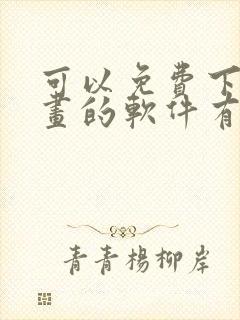 可以免費下
畫的軟件有
青青楊柳岸